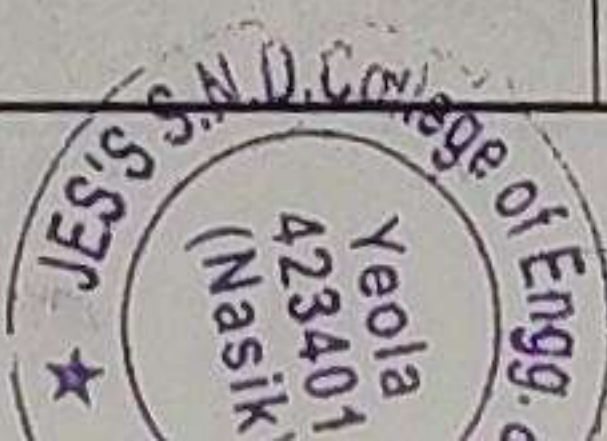 JES'S S.N.D. College of Engg.
Yeola
423401
(Nasik)